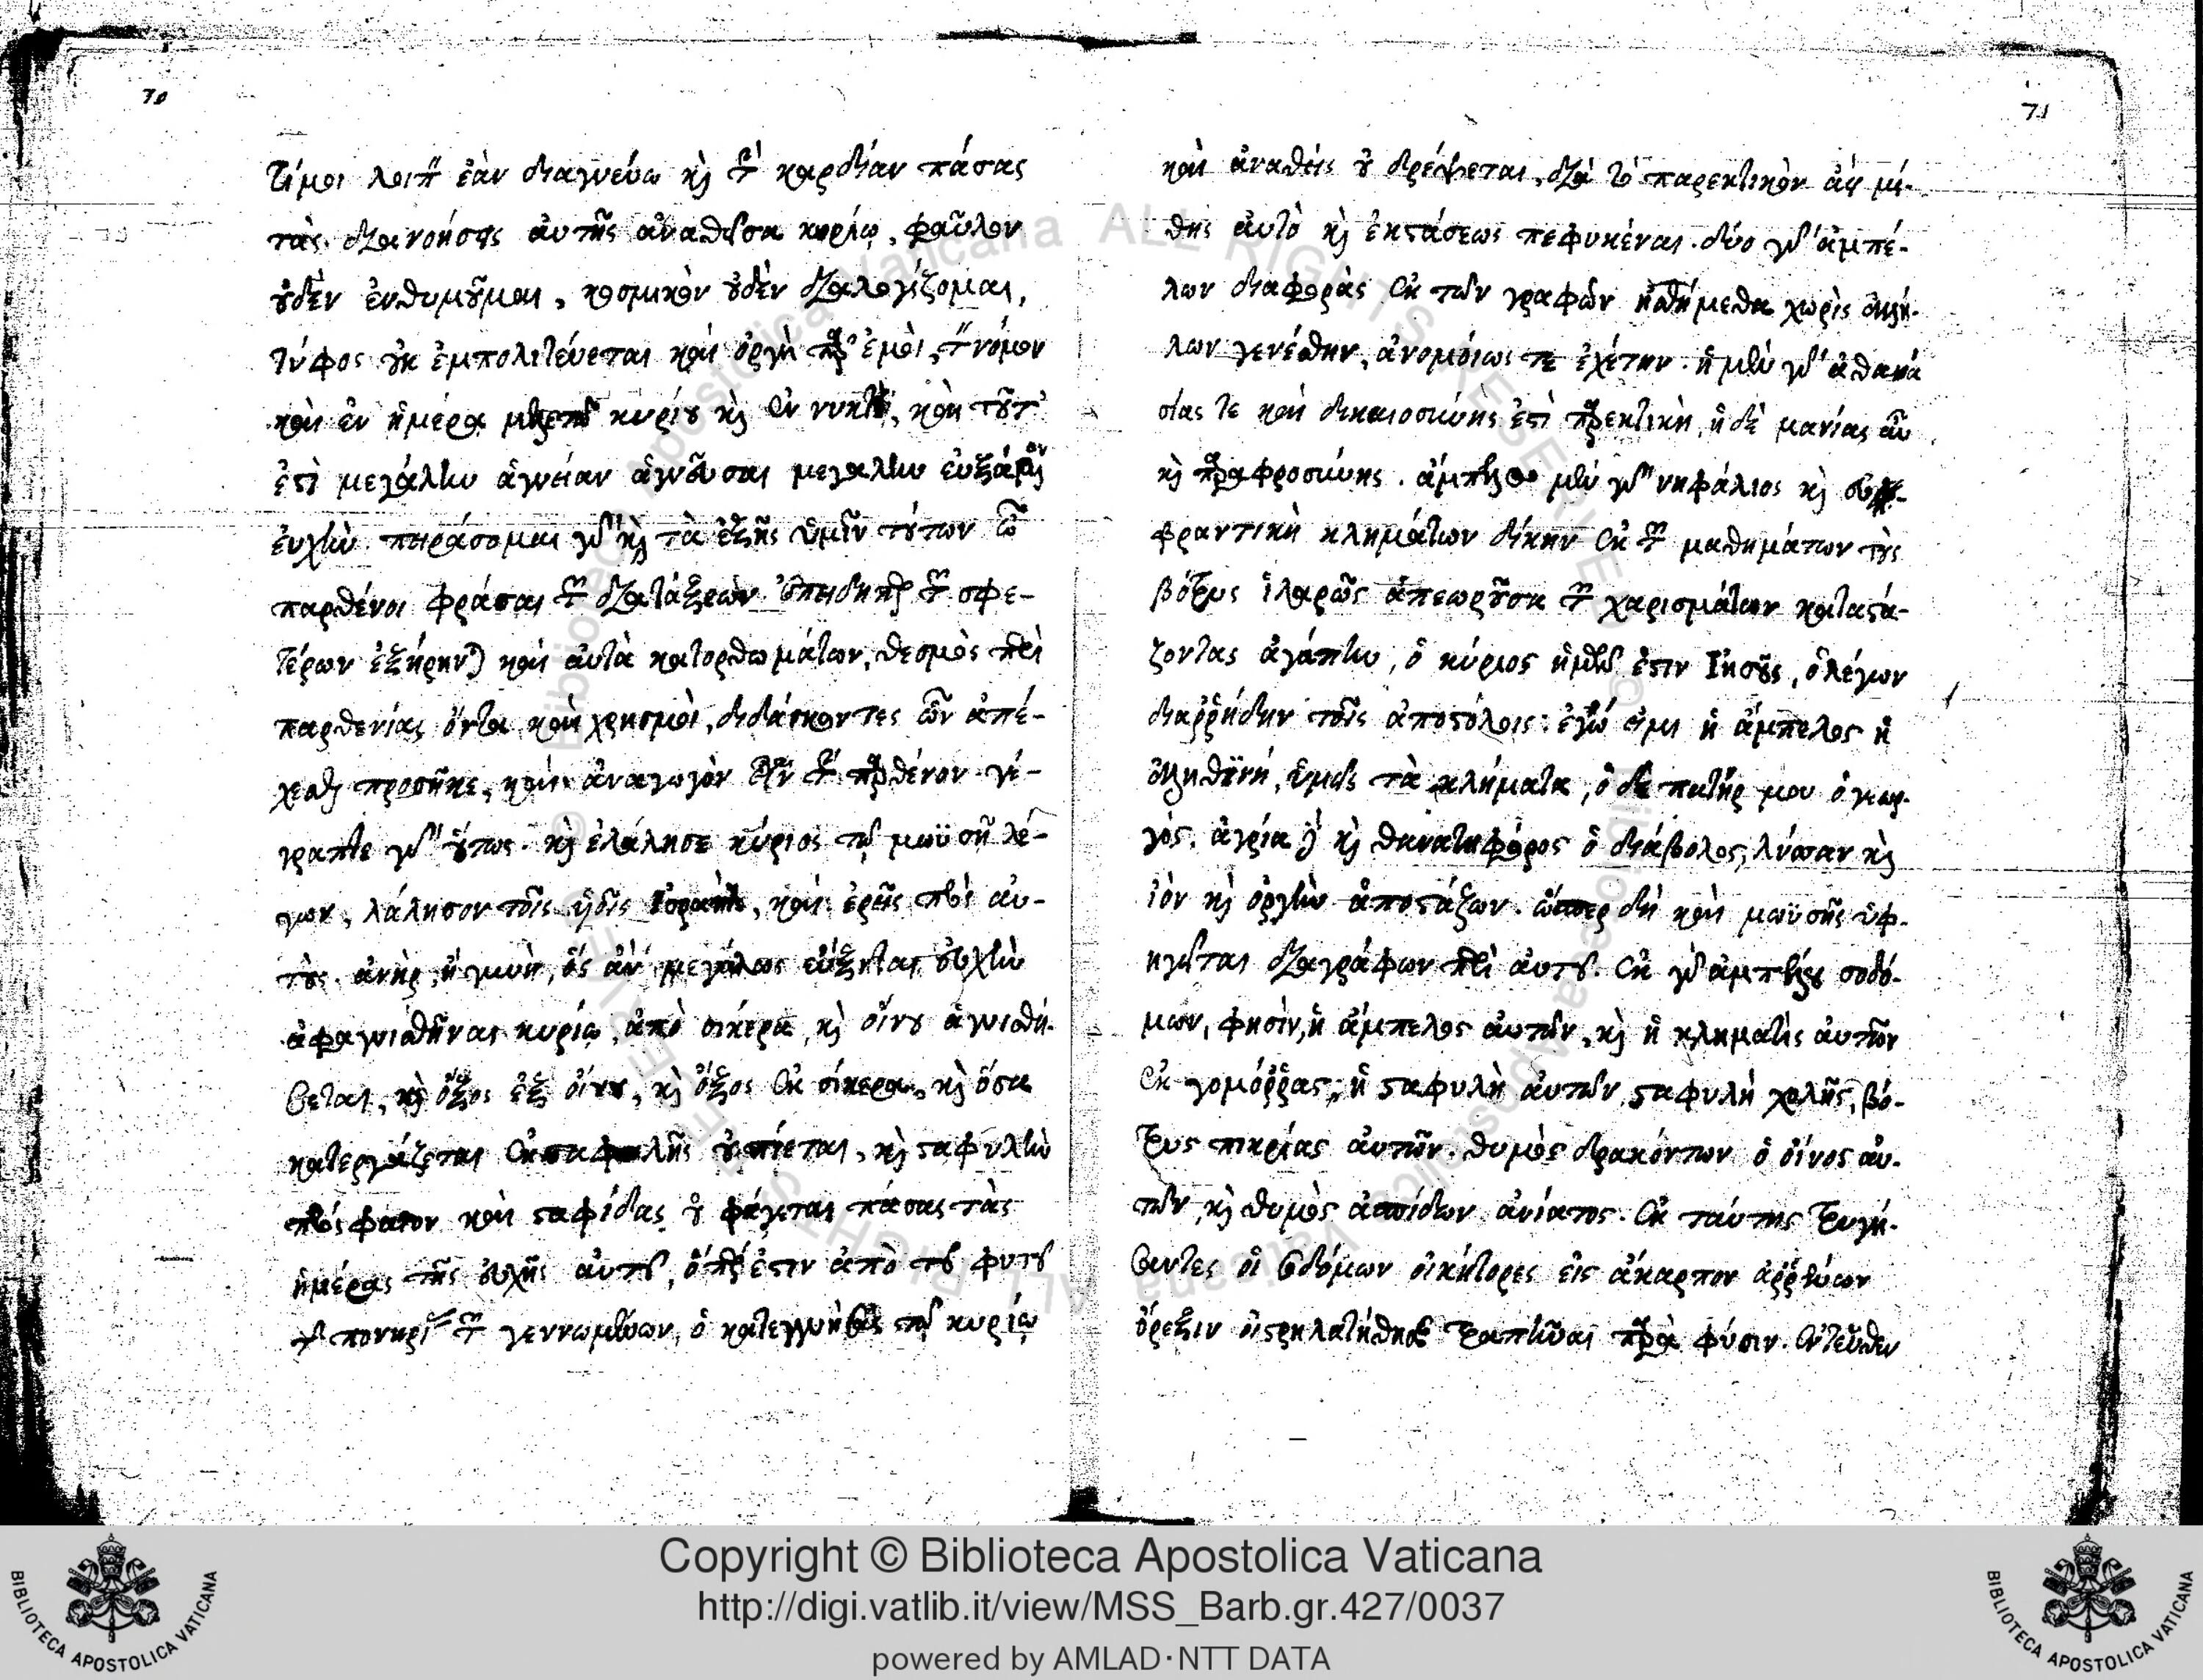 70
τί μοι λοιπὸν ἐὰν διαγνεύω καὶ τὴν καρδίαν πάσας
τὰς διανοήσεις αὐτῆς ἀναθεῖσα κυρίῳ, φαῦλον
οὐδὲν ἐνθυμοῦμαι, κοσμικὸν οὐδὲν διαλογίζομαι,
τύφος οὐκ ἐμπολιτεύεται καὶ ὀργὴ παρ' ἐμοὶ, τὸν νόμον
καὶ ἐν ἡμέρᾳ μελετῶ κυρίου καὶ ἐν νυκτὶ, καὶ τοῦτ'
ἐστὶ μεγάλην ἁγνείαν ἁγνεῦσαι μεγάλην εὐξάμενον
εὐχὴν. πειράσομαι γὰρ καὶ τὰ ἑξῆς ὑμῖν τούτων ὦ
παρθένοι φράσαι τῶν διατάξεων. ἐπειδήπερ τῶν σφε-
τέρων ἐξήρηνται καὶ αὐτὰ κατορθωμάτων, θεσμὸς περὶ
παρθενίας ὄντα καὶ χρησμοὶ, διδάσκοντες ὧν ἀπέ-
χεσθαι προσῆκε, καὶ ἀναγωγὸν εἶναι τὴν παρθένον. γέ-
γραπται γὰρ οὕτως. καὶ ἐλάλησε κύριος τῷ μωϋσῇ λέ-
γων, λάλησον τοῖς υἱοῖς Ἰσραὴλ, καὶ ἐρεῖς πρὸς αὐ-
τούς. ἀνὴρ, ἢ γυνὴ, ὃς ἂν μεγάλως εὔξηται εὐχὴν
ἀφαγνισθῆναι κυρίῳ, ἀπὸ σίκερα, καὶ οἴνου ἁγνισθή-
σεται, καὶ ὄξος ἐξ οἴνου, καὶ ὄξος ἐκ σίκερα, καὶ ὅσα
κατεργάζεται ἐκ σταφυλῆς οὐ πίεται, καὶ σταφυλὴν
πρόσφατον καὶ σταφίδας οὐ φάγεται πάσας τὰς
ἡμέρας τῆς εὐχῆς αὐτοῦ, ὅπερ ἐστιν ἀπὸ τοῦ φυτοῦ
τοῦ πονηροῦ τῶν γεννωμένων, ὁ κατεγγυήσας τῷ κυρίῳ
71
καὶ ἀναθεὶς οὐ δρέψεται, διὰ τὸ παρεκτικὸν ἀεὶ μέ-
θης αὐτὸ καὶ ἐκστάσεως πεφυκέναι. δύο γὰρ ἀμπέ-
λων διαφορὰς ἐκ τῶν γραφῶν ᾐσθήμεθα χωρὶς ἀλλή-
λων γενέσθην, ἀνομοίως τε ἐχέτην. ἡ μὲν γὰρ ἀθανα
σίας τε καὶ δικαιοσύνης ἐστὶ παρεκτικὴ, ἡ δὲ μανίας αὖ
καὶ παραφροσύνης. ἄμπελος μὲν γὰρ νηφάλιος καὶ εὐ-
φραντικὴ κλημάτων δίκην ἐκ τῶν μαθημάτων τοὺς
βότρυς ἱλαρῶς ἀπεωροῦσα τῶν χαρισμάτων καταστά-
ζοντας ἀγάπην, ὁ κύριος ἡμῶν ἐστιν Ἰησοῦς, ὁ λέγων
διαῤῥήδην τοῖς ἀποστόλοις: ἐγώ εἰμι ἡ ἄμπελος ἡ
ἀληθϊνή, ὑμεῖς τὰ κλήματα, ὁ δὲ πατήρ μου ὁ γεωρ-
γός. ἀγρία δὲ καὶ θανατηφόρος ὁ διάβολος, λύσσαν καὶ
ἰὸν καὶ ὀργὴν ἀποστάζων. ὥσπερ δὴ καὶ μωϋσῆς ὑφ-
ηγεῖται διαγράφων περὶ αὐτοῦ. ἐκ γὰρ ἀμπέλου σοδό-
μων, φησὶν, ἡ ἄμπελος αὐτῶν, καὶ ἡ κληματὶς αὐτῶν
ἐκ γομόῤῥας, ἡ σταφυλὴ αὐτῶν, σταφυλὴ χολῆς, βό-
τρυς πικρίας αὐτῶν. θυμὸς δρακόντων ὁ οἶνος αὐ-
τῶν, καὶ θυμὸς ἀσπίδων ἀνίατος. ἐκ ταύτης τρυγή-
σαντες οἱ σοδόμων οἰκήτορες εἰς ἄκαρπον ἀῤῥένων
ὄρεξιν οἰστρηλατήθησαν τραπῆναι παρὰ φύσιν. ἐντεῦθεν
Copyright © Biblioteca Apostolica Vaticana
http://digi.vatlib.it/view/MSS_Barb.gr.427/0037
powered by AMLAD·NTT DATA
BIBLIOTECA APOSTOLICA VATICANA
BIBLIOTECA APOSTOLICA VATICANA